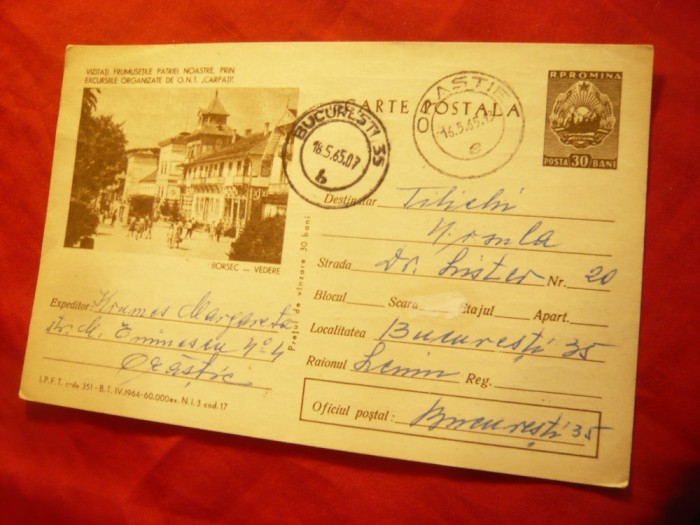 VIZITAȚI FRUMUSEȚILE PATRIEI NOASTRE, PRIN
EXCURSIILE ORGANIZATE DE O.N.T. „CARPAȚI”.
BORSEC — VEDERE
Expeditor: Kramos Margareta
str. M. Eminescu No 4
Orăștie
I.P.F.T. c-da 351-B.T. IV.1964-60.000 ex. N.I.3 cod. 17
Prețul de vînzare 30 bani
CARTE POSTALA
BUCURESTI 35
16.5.65.07
b
ORASTIE
16.5.65
e
R.P.ROMINA
POSTA 30 BANI
Destinatar Tilichi
Ursula
Strada Dr. Lister Nr. 20
Blocul Scara Etajul Apart.
Localitatea București 35
Raionul Lenin Reg.
Oficiul poștal: București 35